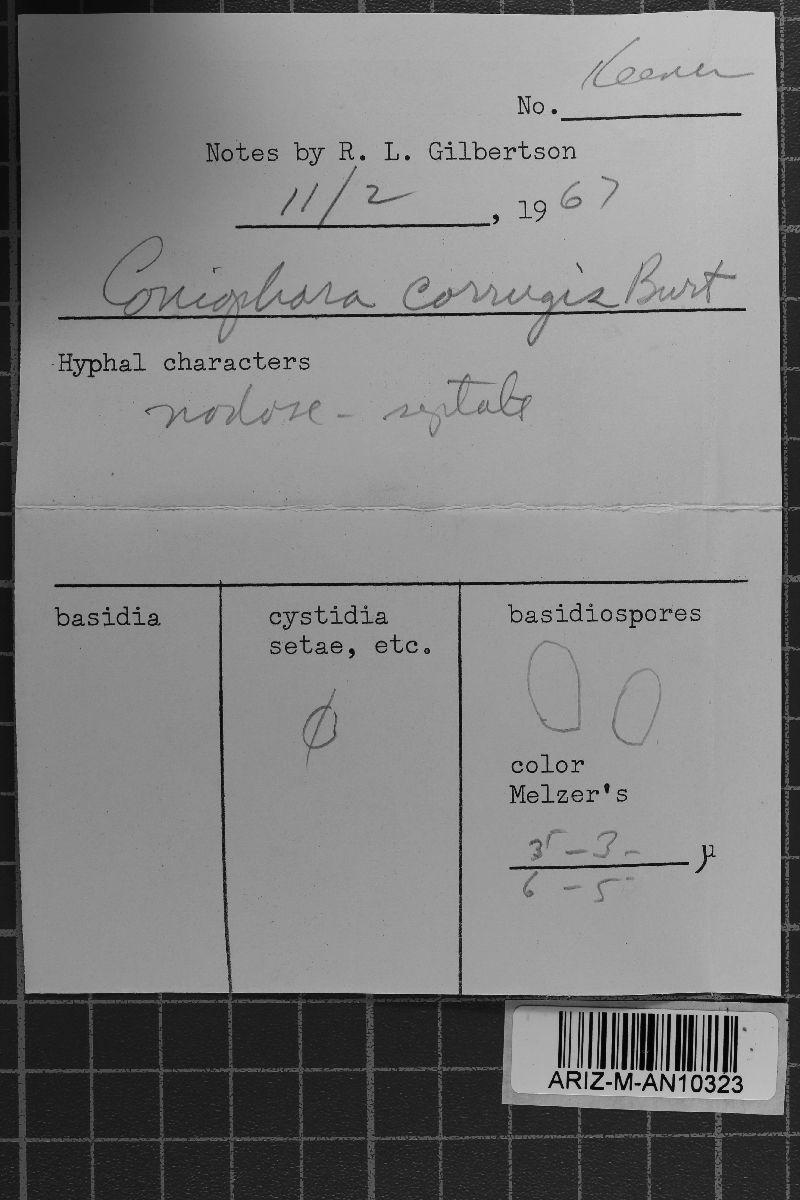 No. Keener
Notes by R. L. Gilbertson
11/2, 1967
Coniophora corrugis Burt
Hyphal characters
nodose - septate
basidia
cystidia
setae, etc.
ϕ
basidiospores
color
Melzer's
3⁵ - 3 - μ
6 - 5
ARIZ-M-AN10323